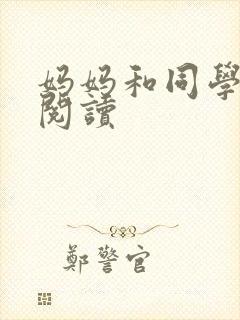 妈妈和同學
閱讀
鄭警官